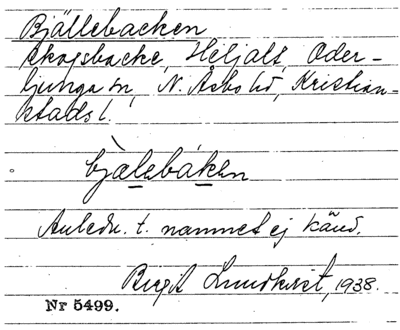 Bjällebacken
skogsbacke, Heljalt, Oder-
ljunga sn, N. Åsbo hd, Kristian-
stads l.
bjälebáken
Anledn. t. namnet ej känd.
Birgit Lundkvist, 1938.
Nr 5499.